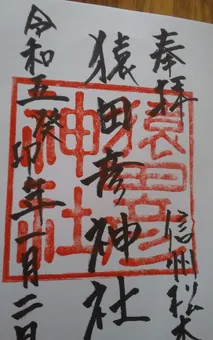 奉拝
信州松本
猿田彦神社
猿田彦神社
令和五癸卯年一月二日